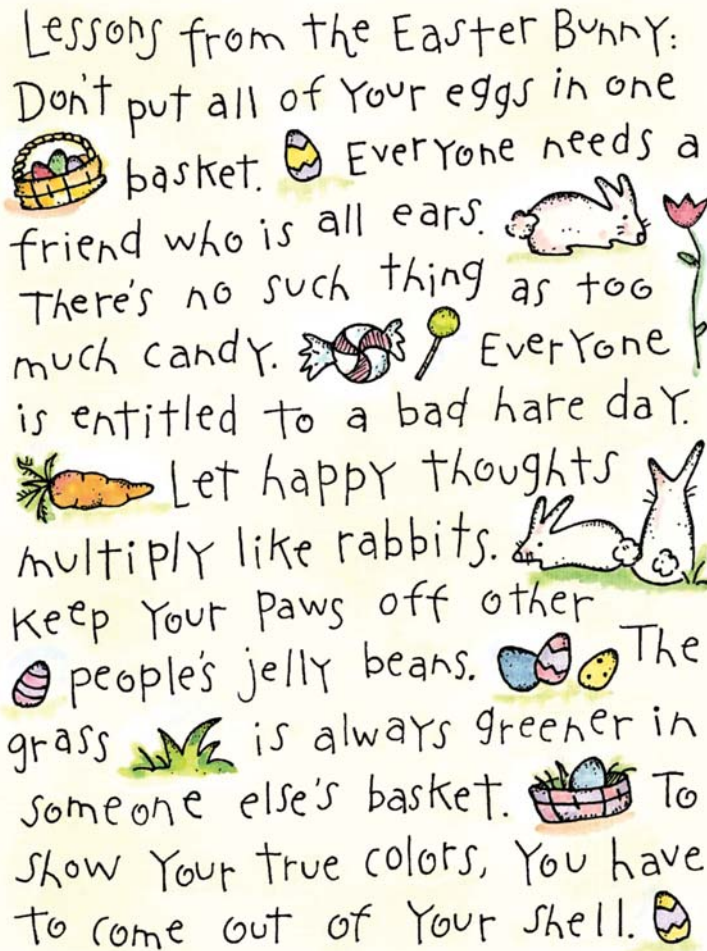 Lessons from the Easter Bunny:
Don't put all of Your eggs in one
basket. Everyone needs a
friend who is all ears.
There's no such thing as too
much candy. Everyone
is entitled to a bad hare day.
Let happy thoughts
multiply like rabbits.
Keep Your paws off other
people's jelly beans. The
grass is always greener in
someone else's basket. To
show Your true colors, You have
to come out of Your shell.